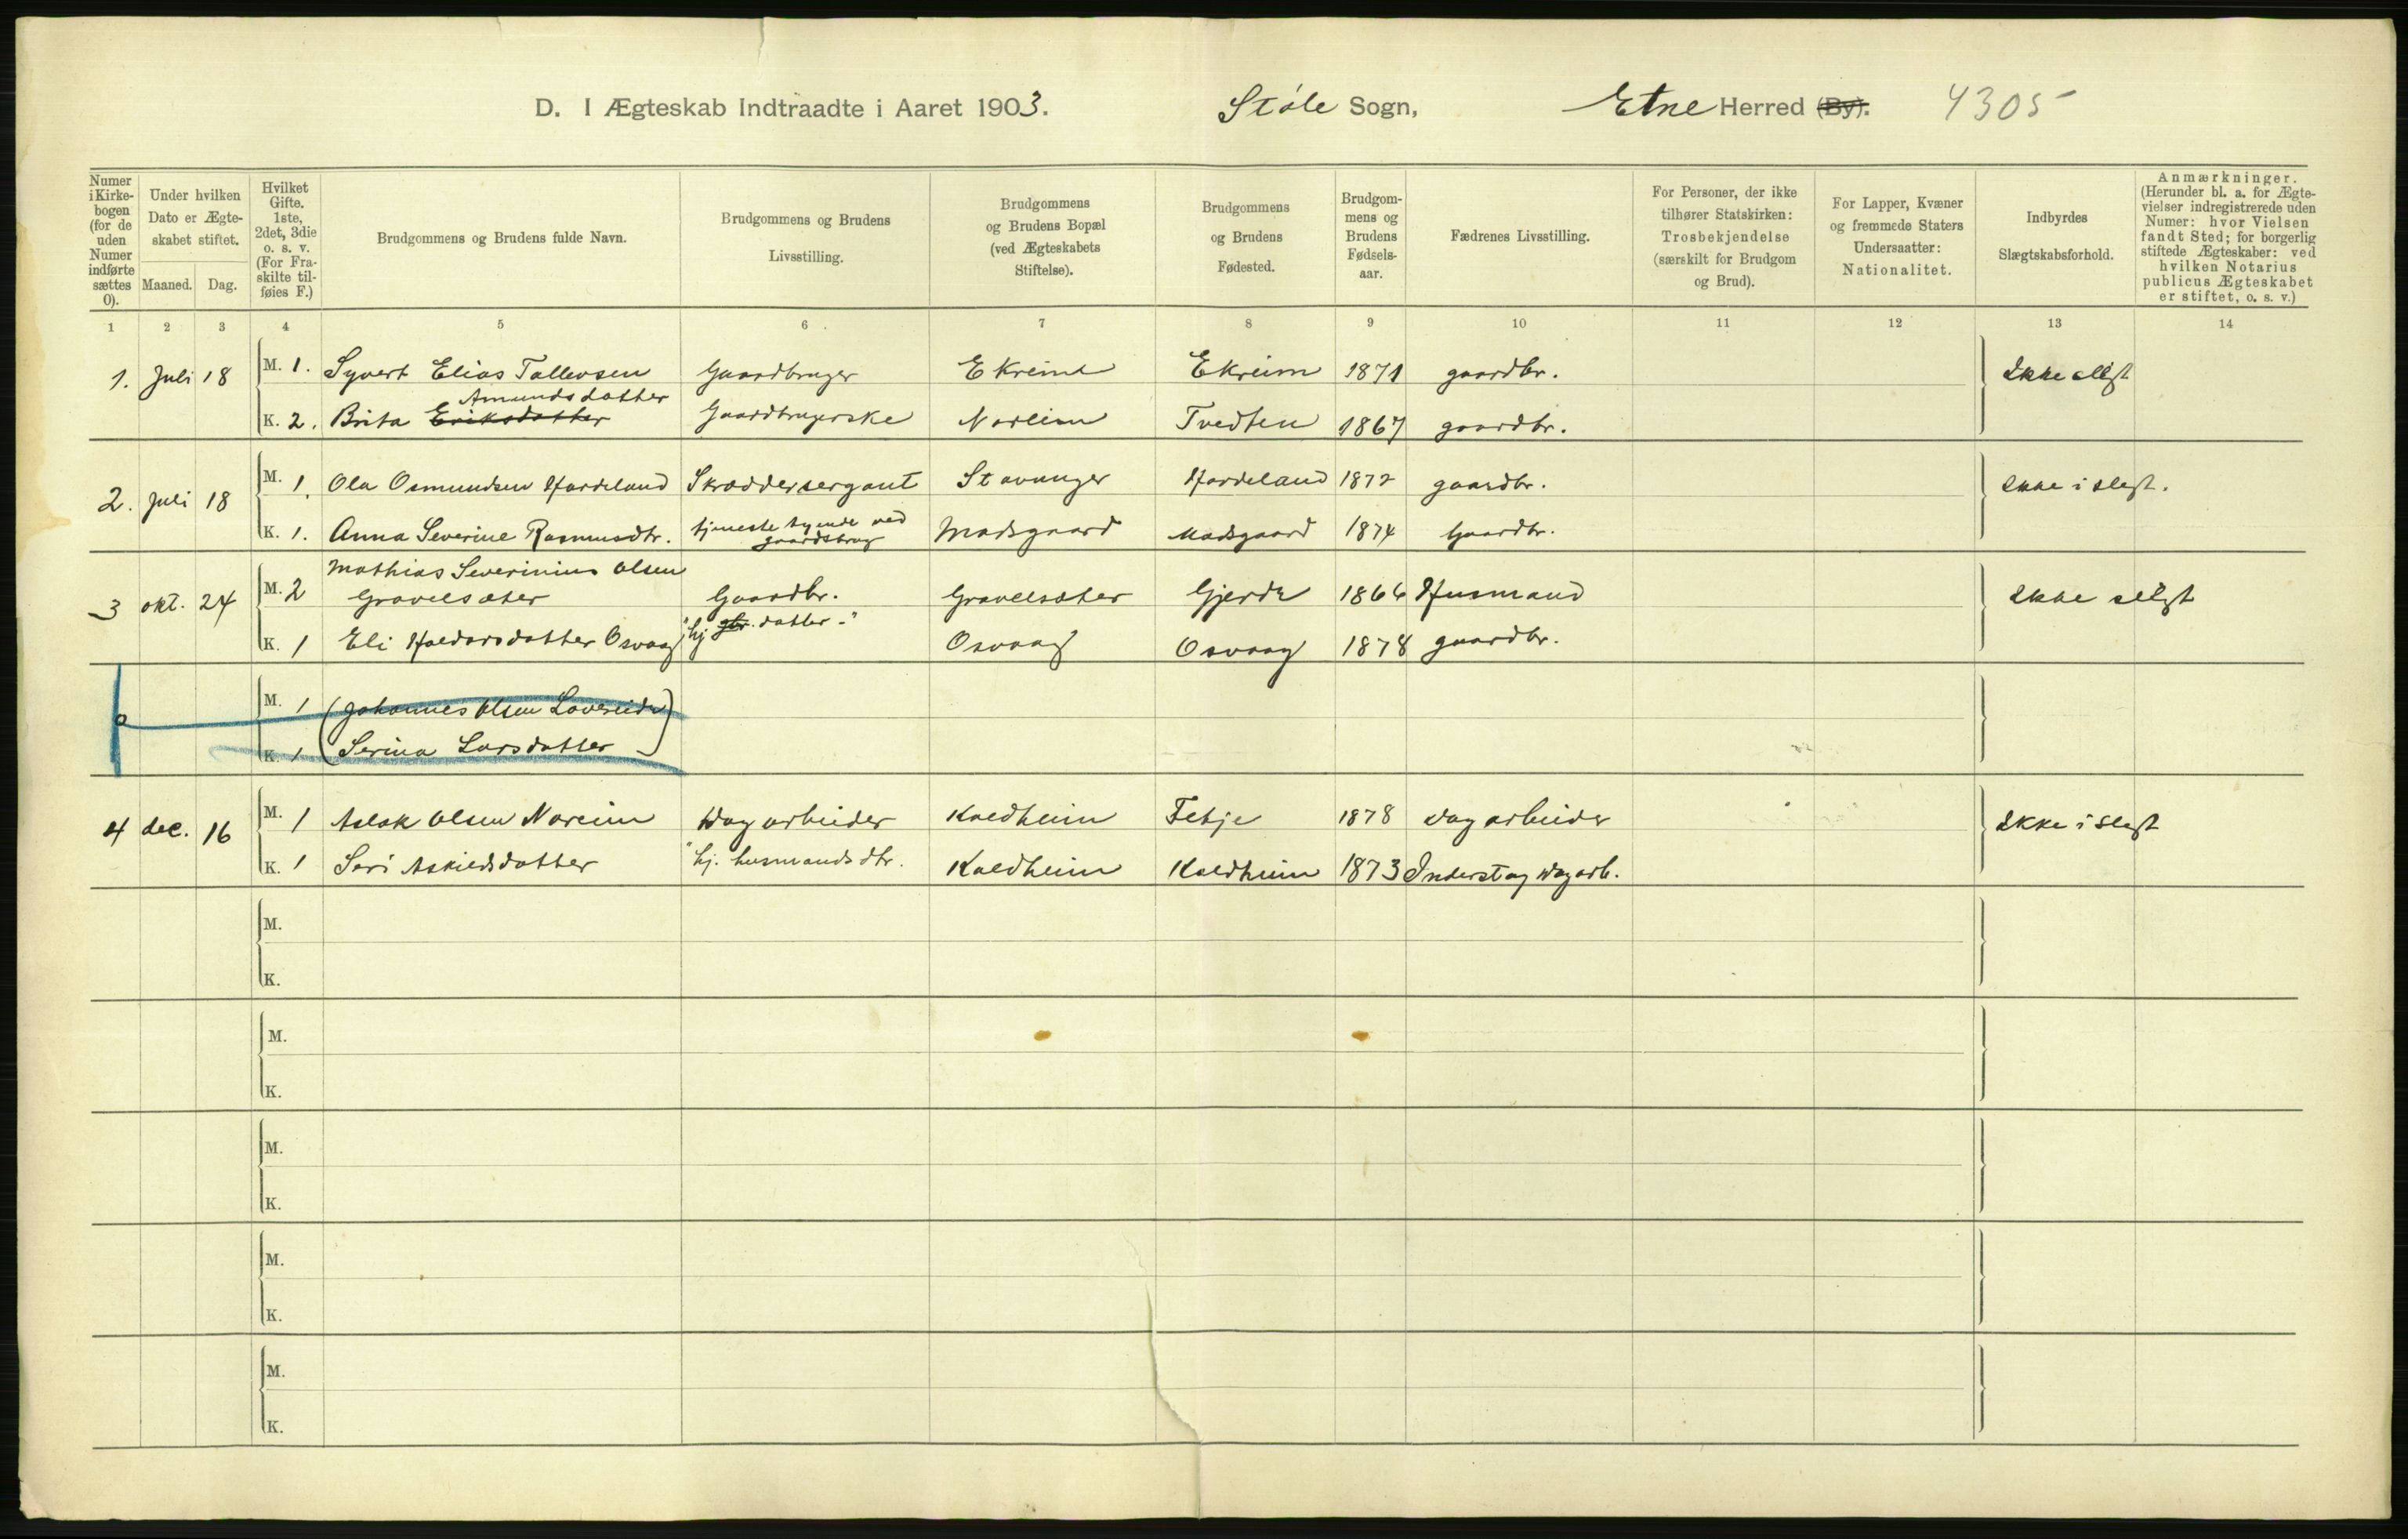 D. I Ægteskab Indtraadte i Aaret 1903. Støle Sogn, Etne Herred (By). 4305
Numer i Kirke-bogen (for de uden Numer indførte sættes 0).
Under hvilken Dato er Ægte-skabet stiftet.
Maaned. Dag.
Hvilket Gifte. 1ste, 2det, 3die o. s. v. (For Fra-skilte til-føies F.)
Brudgommens og Brudens fulde Navn.
Brudgommens og Brudens Livsstilling.
Brudgommens og Brudens Bopæl (ved Ægteskabets Stiftelse).
Brudgommens og Brudens Fødested.
Brudgom-mens og Brudens Fødsels-aar.
Fædrenes Livsstilling.
For Personer, der ikke tilhører Statskirken: Trosbekjendelse (særskilt for Brudgom og Brud).
For Lapper, Kvæner og fremmede Staters Undersaatter: Nationalitet.
Indbyrdes Slægtskabsforhold.
Anmærkninger. (Herunder bl. a. for Ægte-vielser indregistrerede uden Numer: hvor Vielsen fandt Sted; for borgerlig stiftede Ægteskaber: ved hvilken Notarius publicus Ægteskabet er stiftet, o. s. v.)
1 2 3 4 5 6 7 8 9 10 11 12 13 14
1. Juli 18 M. 1. Syvert Elias Tollevsen Gaardbruger Ekreim Ekreim 1871 gaardbr. Ikke slegt
Amundsdatter
K. 2. Brita Eriksdatter Gaardbrugerske Norheim Tvedten 1867 gaardbr.
2. Juli 18 M. 1. Ola Osmundsen Hardeland Skræddersergant Stavanger Hardeland 1872 gaardbr. Ikke i slegt.
K. 1. Anna Severine Rasmusdtr. tjeneste tyende ved gaardsbrug Madsgaard Madsgaard 1874 Gaardbr.
Mathias Severinius Olsen
3 okt. 24 M. 2 Gravelsæter Gaardbr. Gravelsæter Gjerde 1866 Husmand Ikke slegt
K. 1 Eli Haldorsdatter Osvaag "hj. gbr. datter-" Osvaag Osvaag 1878 gaardbr.
0 M. 1 (Johannes Olsen Lovereide)
K. 1 (Serina Larsdatter)
4 dec. 16 M. 1 Aslak Olsen Nareim Dagarbeider Kaldheim Fetje 1878 Dagarbeider Ikke i slegt
K. 1 Seri Askildsdatter "hj. husmandsdtr. Kaldheim Kaldheim 1873 Inderst og Dagarb.
M.
K.
M.
K.
M.
K.
M.
K.
M.
K.